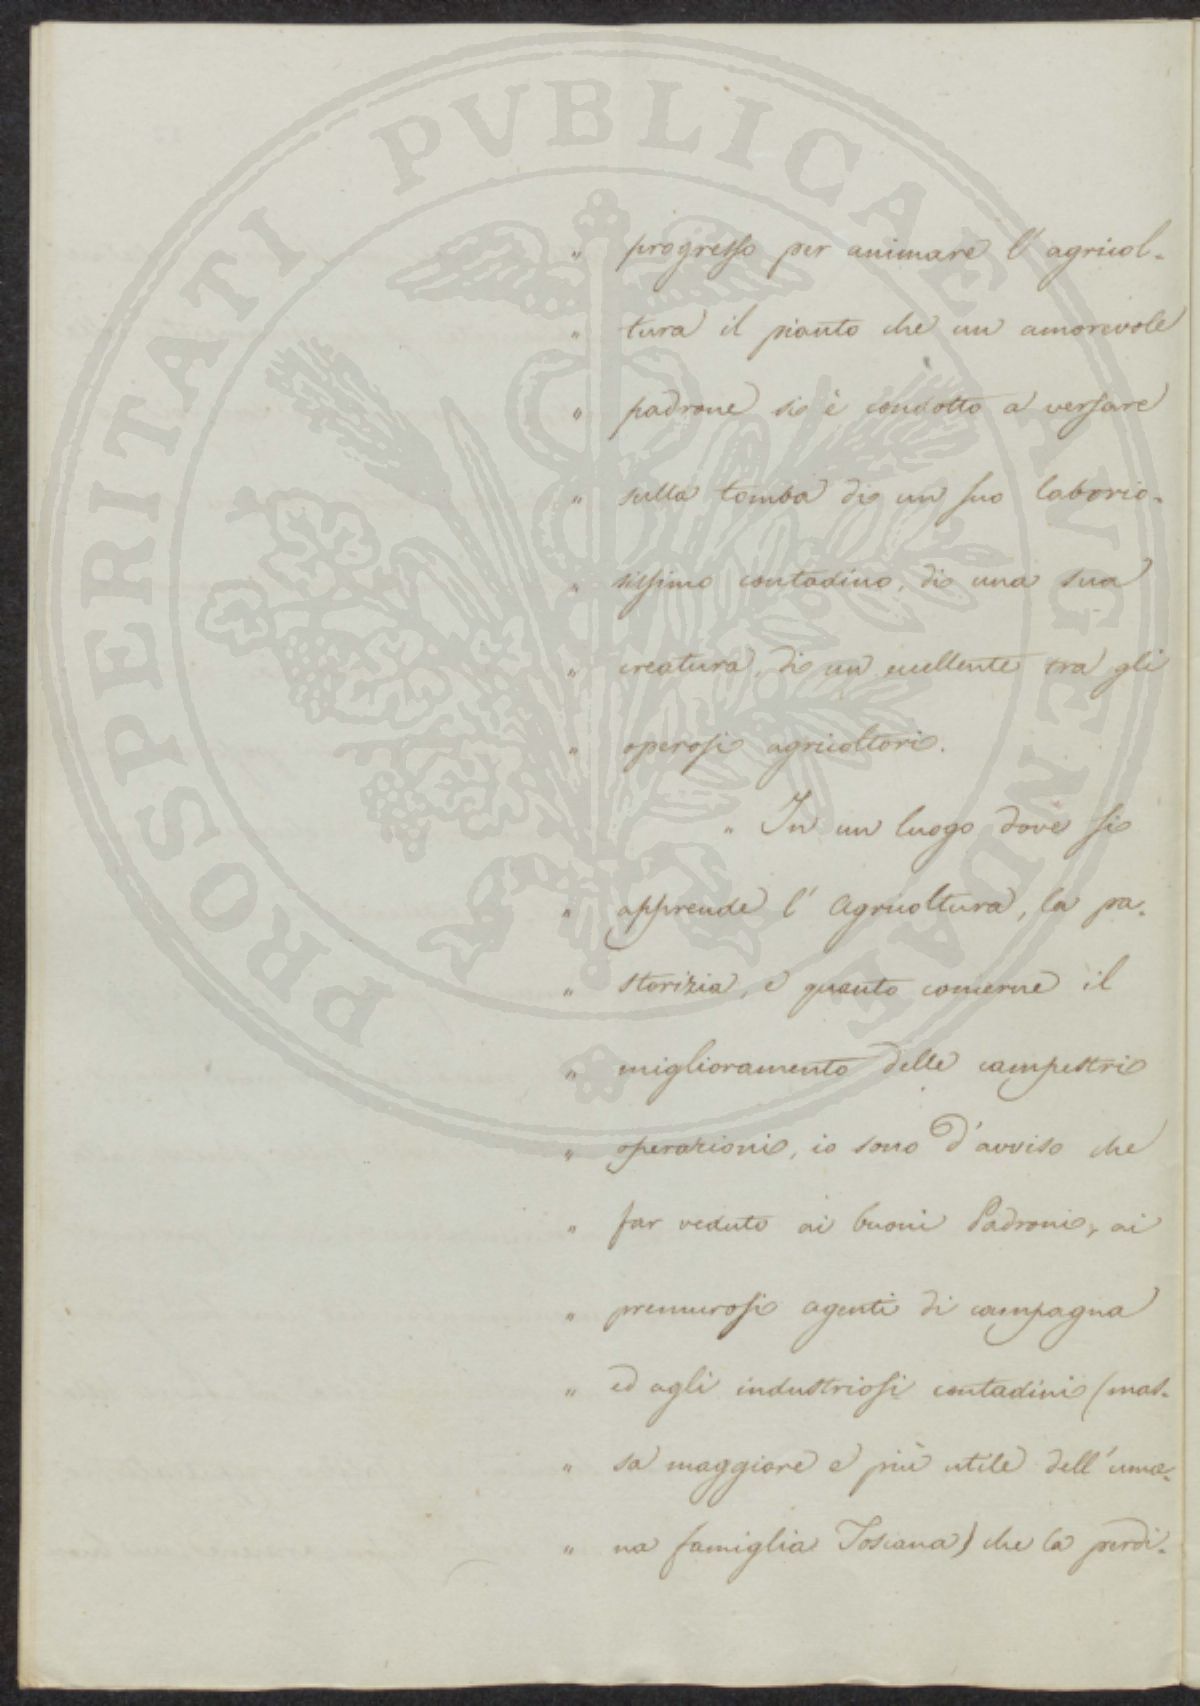 PROSPERITATI PUBLICAE AVGENDAE
" progresso per animare l'agricol-
" tura il pianto che un amorevole
" padrone si è condotto a versare
" sulla tomba di un suo laborio-
" sissimo contadino, di una sua
" creatura, di un eccellente tra gli
" operosi agricoltori.
" In un luogo dove si
" apprende l'Agricoltura, la pa-
" storizia, e quanto concerne il
" miglioramento delle campestri
" operazioni, io sono d'avviso che
" far veduto ai buoni Padroni, ai
" premurosi agenti di campagna
" ed agli industriosi contadini (mas-
" sa maggiore e più utile dell'uma-
" na famiglia Toscana) che la perdi-